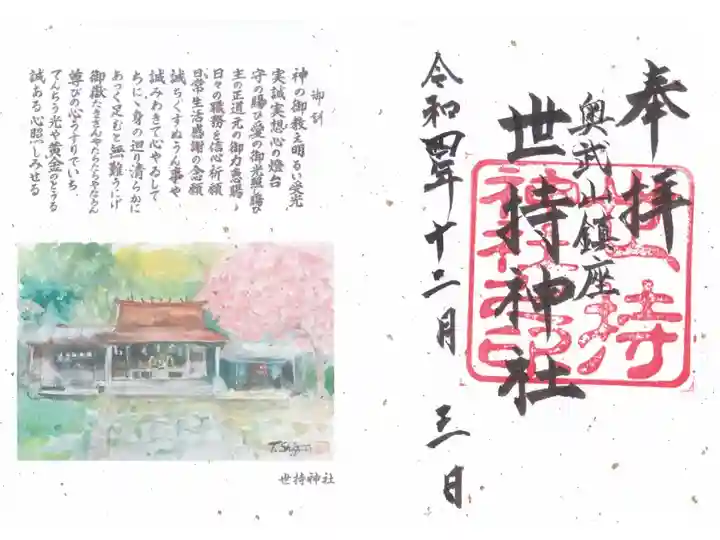 奉拝
奥武山鎮座
世持神社
世持
神社之印
令和四年十二月 三日
御訓
神の御教え明るい愛光
実誠実想心の燈台
守の賜び愛の御光照に賜び
主の正道元の御力恵賜う
日々の職務を信心祈願
日常生活感謝の念願
誠ちくすぬうん事や
誠みわきて心やるして
ちに、身の廻り清らかに
あつく足むと無難うにげ
尊びの心うすりでいち
てんとう光や黄金のとうる
誠ある心照しみせる
世持神社